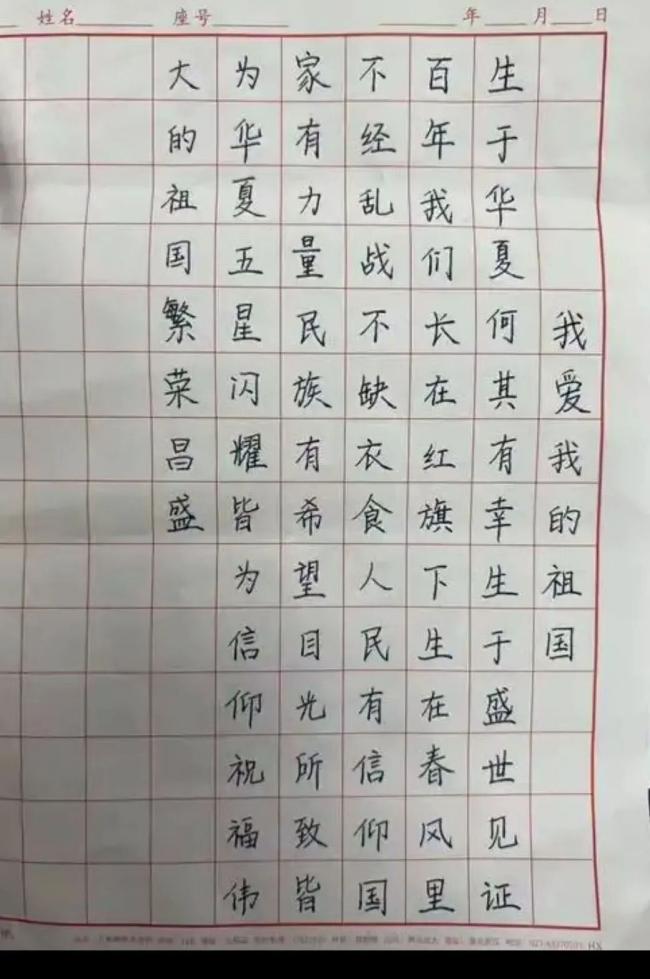 姓名 座号 年 月 日
我爱我的祖国
生于华夏何其有幸生于盛世见证
百年我们长在红旗下生在春风里
不经乱战不缺衣食人民有信仰国
家有力量民族有希望目光所致皆
为华夏五星闪耀皆为信仰祝福伟
大的祖国繁荣昌盛